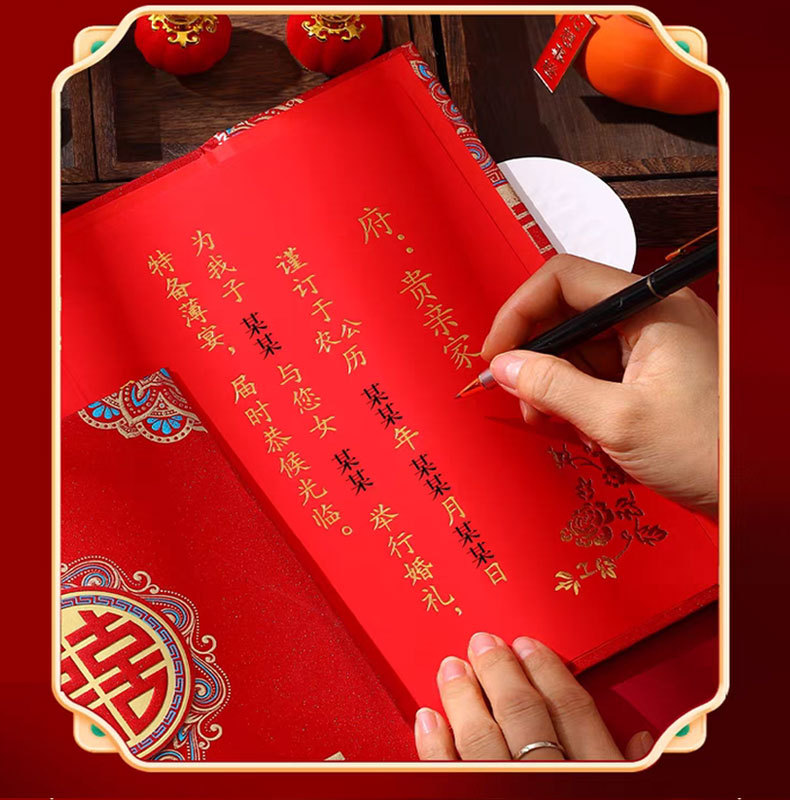 府：贵亲家
谨订于公农历某某年某某月某某日
为我子某某与您女某某举行婚礼，
特备薄宴，届时恭候光临。
囍